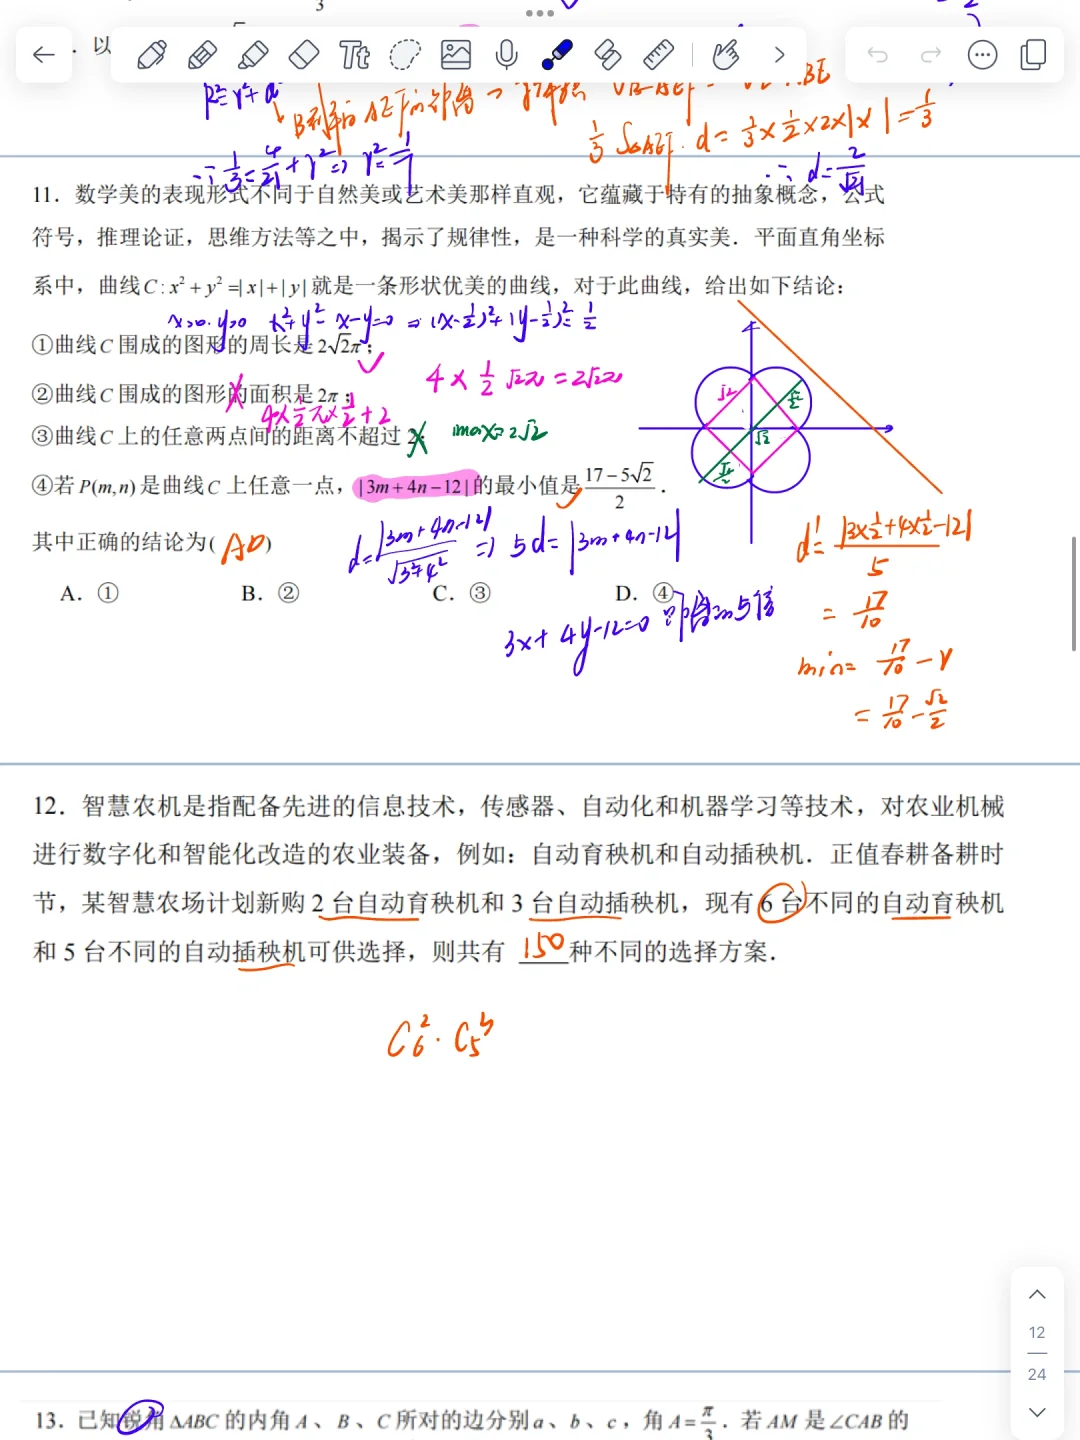 3
. 以
Tt
R²=r²+d²
B到平面AEF的距离
1/3 S△AEF·d=1/3×1/2×2×|×|=1/3
∴1/3=4/21+r²⇒r²=1/7
∴d=2/√21
11. 数学美的表现形式不同于自然美或艺术美那样直观,它蕴藏于特有的抽象概念,公式
符号,推理论证,思维方法等之中,揭示了规律性,是一种科学的真实美.平面直角坐标
系中,曲线C:x²+y²=|x|+|y|就是一条形状优美的曲线,对于此曲线,给出如下结论:
x>0.y>0 x²+y²-x-y=0 ⇒(x-1/2)²+(y-1/2)²=1/2
①曲线C围成的图形的周长是2√2π;
4×1/2√2π=2√2π
②曲线C围成的图形的面积是2π;
4×1/2π×1/2+2
③曲线C上的任意两点间的距离不超过2;
max=2√2
√2
√2/2
√2
√2/2
④若P(m,n)是曲线C上任意一点,|3m+4n-12|的最小值是(17-5√2)/2.
其中正确的结论为( AD )
d=|3m+4n-12|/√3²+4² ⇒5d=|3m+4n-12|
d'=|3×1/2+4×1/2-12|/5
A. ①
B. ②
C. ③
D. ④
3x+4y-12=0 距离的5倍
=17/10
min=17/10-r
=17/10-√2/2
12. 智慧农机是指配备先进的信息技术,传感器、自动化和机器学习等技术,对农业机械
进行数字化和智能化改造的农业装备,例如:自动育秧机和自动插秧机.正值春耕备耕时
节,某智慧农场计划新购2台自动育秧机和3台自动插秧机,现有6台不同的自动育秧机
和5台不同的自动插秧机可供选择,则共有 150 种不同的选择方案.
C₆²·C₅³
12
24
13. 已知锐角△ABC的内角A、B、C所对的边分别a、b、c,角A=π/3.若AM是∠CAB的